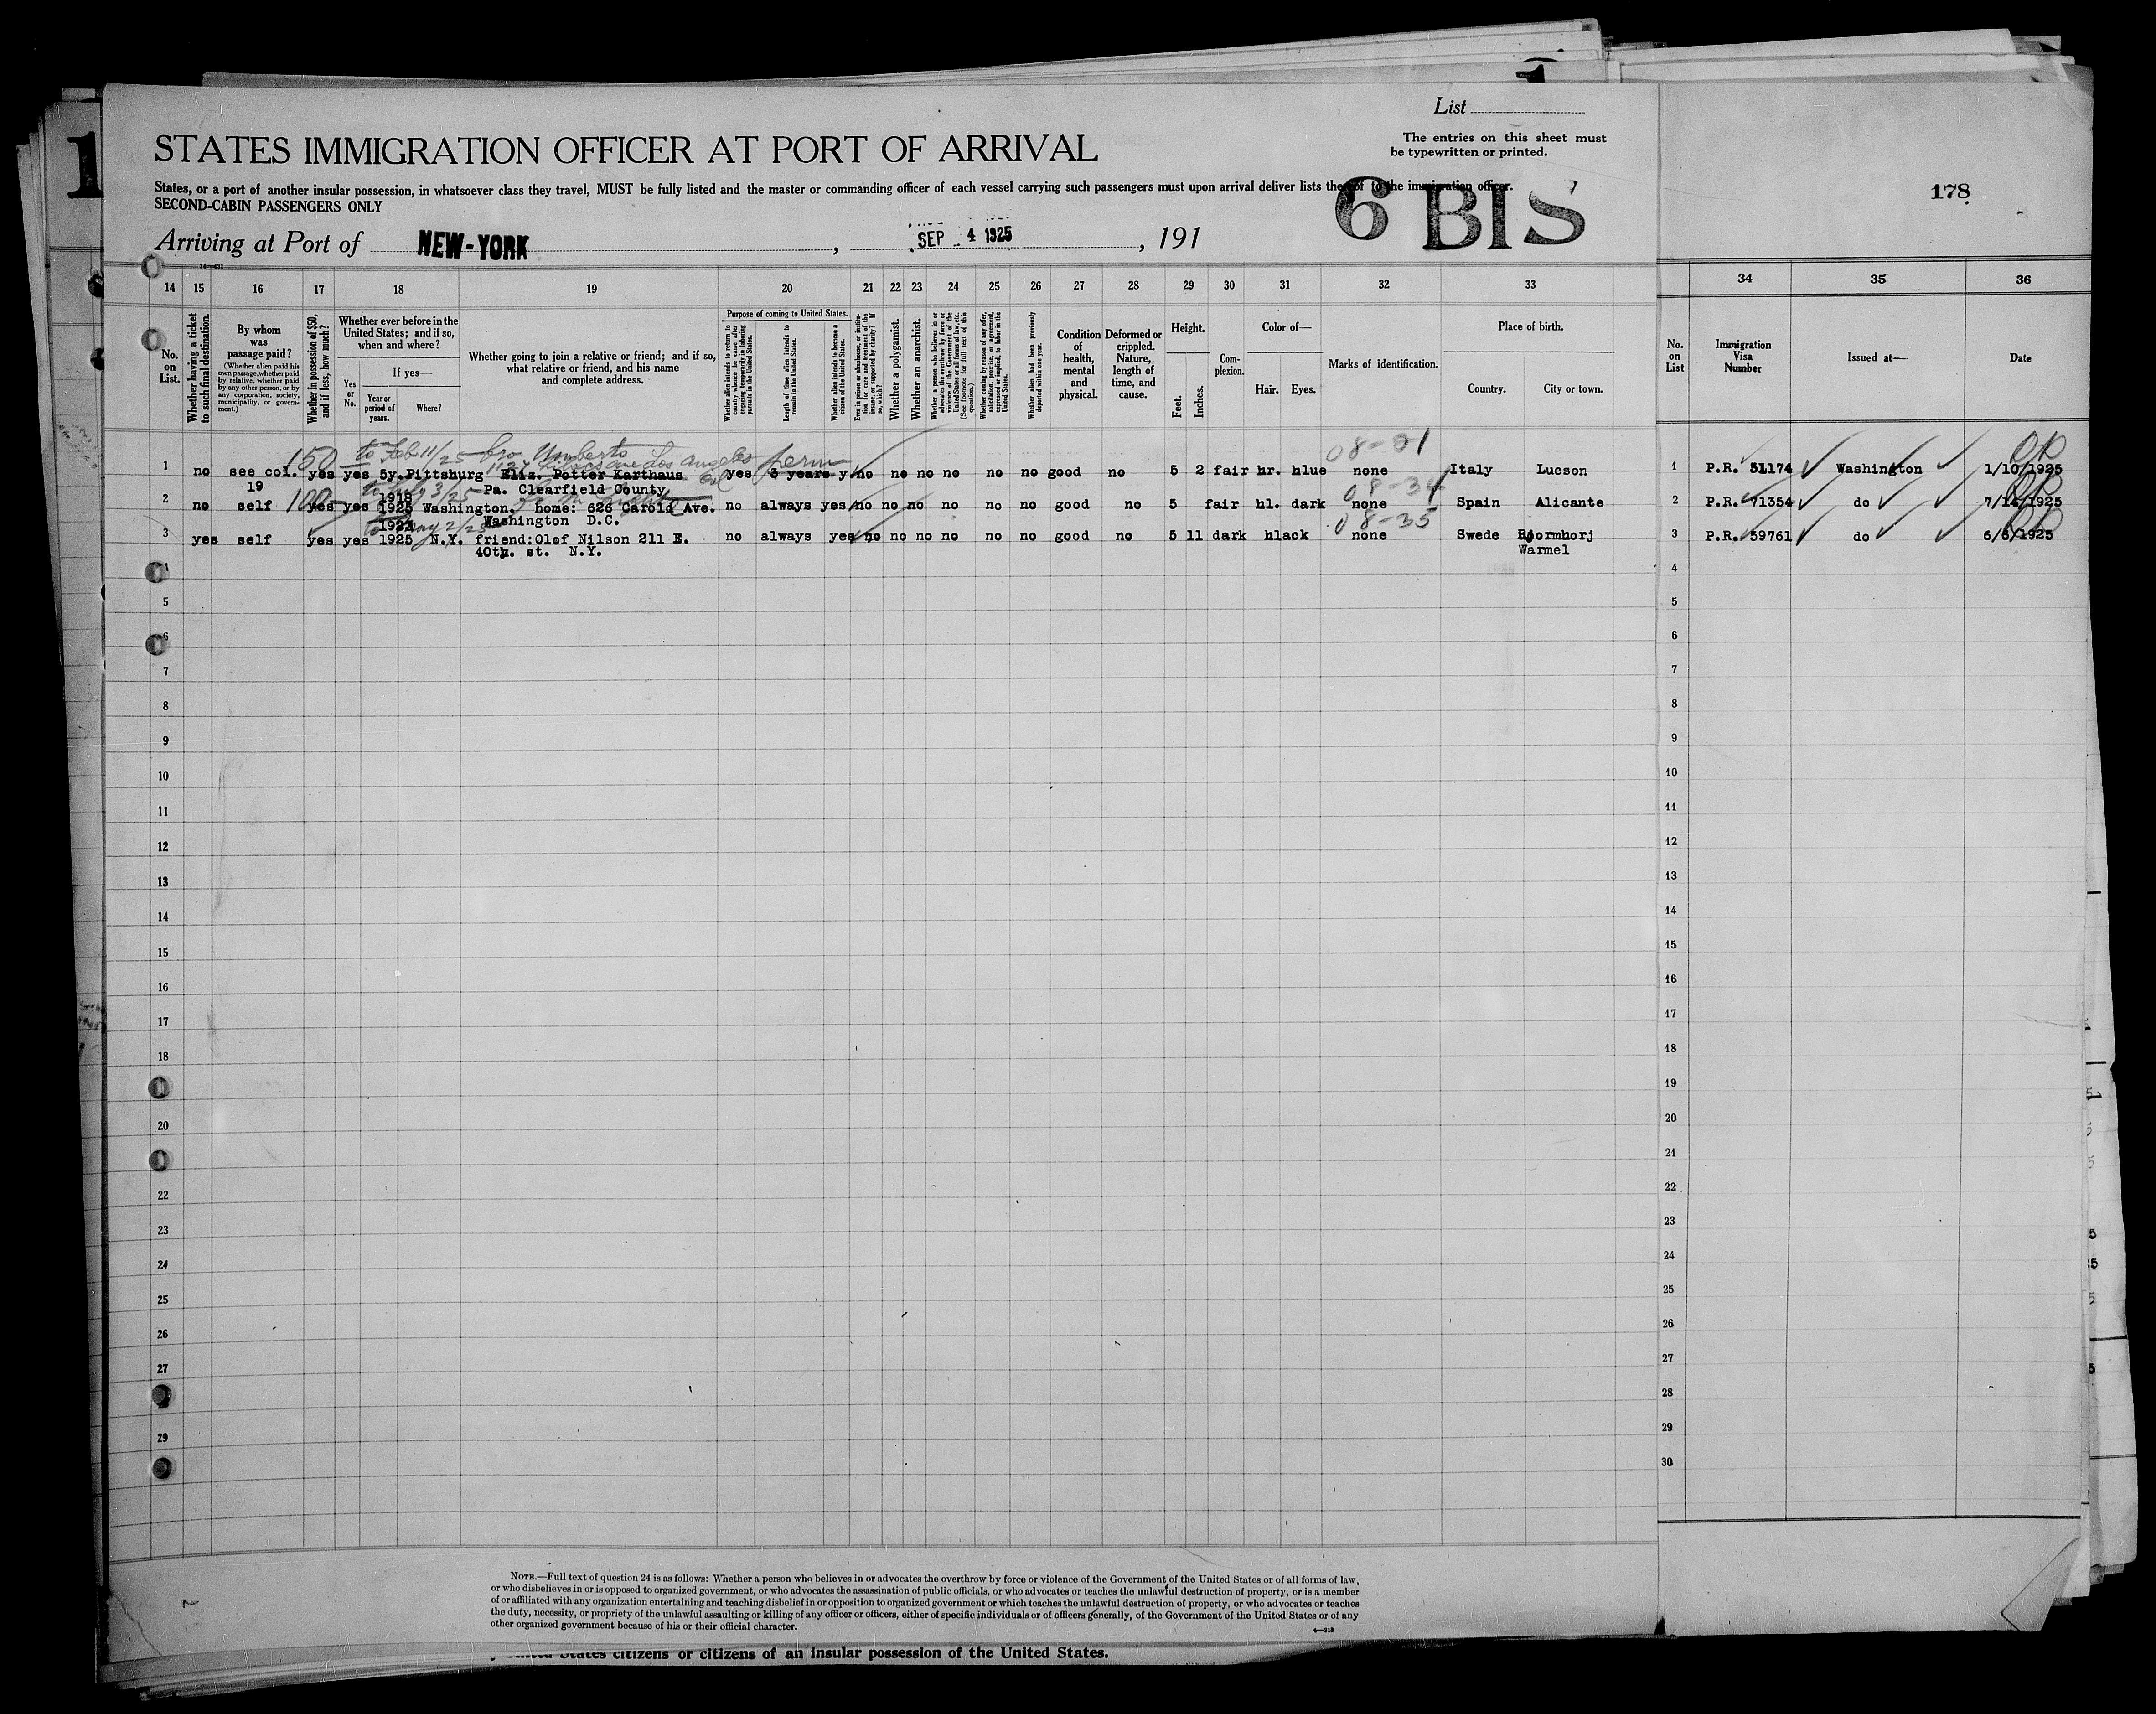 List
STATES IMMIGRATION OFFICER AT PORT OF ARRIVAL
The entries on this sheet must
be typewritten or printed.
States, or a port of another insular possession, in whatsoever class they travel, MUST be fully listed and the master or commanding officer of each vessel carrying such passengers must upon arrival deliver lists thereof to the immigration officer.
SECOND-CABIN PASSENGERS ONLY
6 BIS
178
Arriving at Port of NEW-YORK, SEP 4 1925, 191
14 15 16 17 18 19 20 21 22 23 24 25 26 27 28 29 30 31 32 33 34 35 36
No. on List.
Whether having a ticket to such final destination.
By whom was passage paid?
(Whether alien paid his own passage, whether paid by relative, whether paid by any other person, or by any corporation, society, municipality, or government.)
Whether in possession of $50, and if less, how much?
Whether ever before in the United States; and if so, when and where?
Yes or No.
If yes—
Year or period of years.
Where?
Whether going to join a relative or friend; and if so, what relative or friend, and his name and complete address.
Purpose of coming to United States.
Whether alien intends to return to country whence he came after engaging temporarily in laboring pursuits in the United States.
Length of time alien intends to remain in the United States.
Whether alien intends to become a citizen of the United States.
Ever in prison or almshouse, or institution for care and treatment of the insane, or supported by charity? If so, which?
Whether a polygamist.
Whether an anarchist.
Whether a person who believes in or advocates the overthrow by force or violence of the Government of the United States or all forms of law, etc. (See footnote for full text of this question.)
Whether coming by reason of any offer, solicitation, promise, or agreement, expressed or implied, to labor in the United States.
Whether alien had been previously deported within one year.
Condition of health, mental and physical.
Deformed or crippled. Nature, length of time, and cause.
Height.
Feet. Inches.
Complexion.
Color of—
Hair. Eyes.
Marks of identification.
Place of birth.
Country. City or town.
No. on List
Immigration Visa Number
Issued at—
Date
150 to Feb 11/25 bro Umberto 08-01 OK
Los Angeles Cal perm
1 no see col. 19 yes yes 5y. Pittsburg Elis. Potter Karthaus yes 3 years y. no no no no no no good no 5 2 fair hr. hlue none Italy Lucson 1 P.R. 51174 Washington 1/10/1925
Pa. Clearfield County
100 3/25 1918 08-34
2 no self yes yes 1925 Washington. home: 626 Carold Ave. no always yes no no no no no no good no 5 fair hl. dark none Spain Alicante 2 P.R. 71354 do 7/14/1925
Washington D.C.
to May 2/25 08-35
3 yes self yes yes 1925 N.Y. friend:Olef Nilson 211 E. no always yes no no no no no no good no 5 11 dark hlack none Swede Bjormhorj 3 P.R. 59761 do 6/6/1925
40th. st. N.Y. Warmel
4 4
5 5
6 6
7 7
8 8
9 9
10 10
11 11
12 12
13 13
14 14
15 15
16 16
17 17
18 18
19
20 20
21
22 22
23 23
24 24
25 25
26 26
27 27
28
29 29
30
NOTE.—Full text of question 24 is as follows: Whether a person who believes in or advocates the overthrow by force or violence of the Government of the United States or of all forms of law,
or who disbelieves in or is opposed to organized government, or who advocates the assassination of public officials, or who advocates or teaches the unlawful destruction of property, or is a member
of or affiliated with any organization entertaining and teaching disbelief in or opposition to organized government or which teaches the unlawful destruction of property, or who advocates or teaches
the duty, necessity, or propriety of the unlawful assaulting or killing of any officer or officers, either of specific individuals or of officers generally, of the Government of the United States or of any
other organized government because of his or their official character.
United States citizens or citizens of an insular possession of the United States.